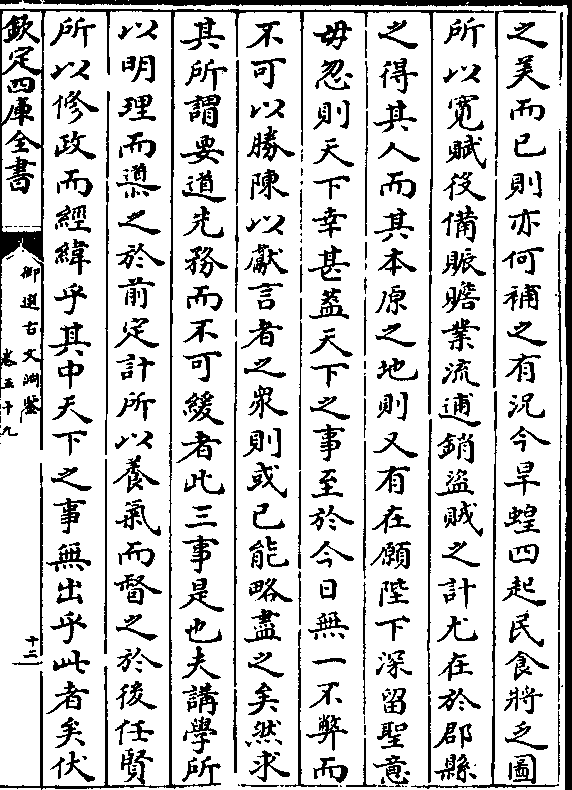 之美而已則亦何補之有況今旱蝗四起民食將乏圖
所以寛賦役備賑贍業流逋銷盜賊之計尤在於郡縣
之得其人而其本原之地則又有在願陛下深留聖意
毋忽則天下幸甚葢天下之事至於今日無一不弊而
不可以勝陳以獻言者之衆則或已能略盡之矣然求
其所謂要道先務而不可緩者此三事是也夫講學所
以明理而導之於前定計所以養氣而督之於後任賢
所以修政而經緯乎其中天下之事無出乎此者矣伏
欽定四庫全書
御選古文淵鑒
卷五十九
十二